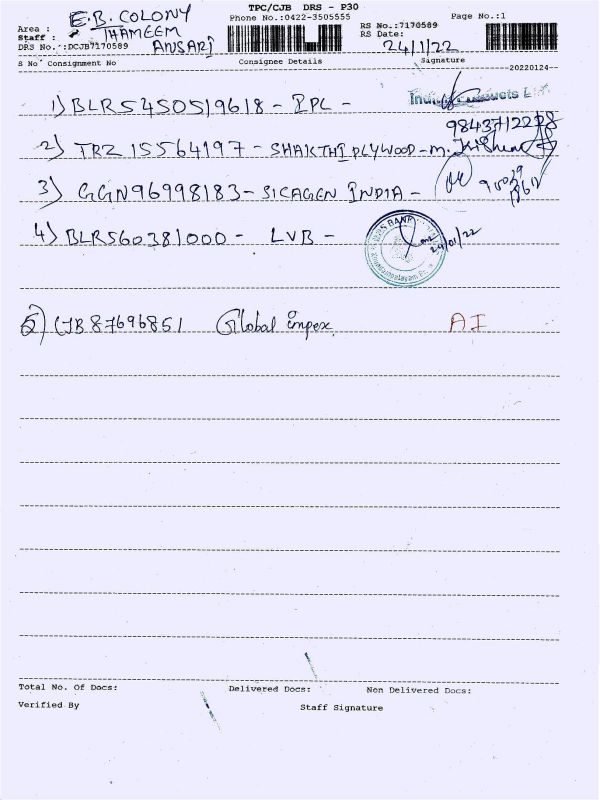 TPC/CJB DRS - P30
Area : E.B. COLONY Phone No.:0422-3505555 RS No.:7170589 Page No.:1
Staff : THAMEEM ANSARI RS Date: 24/1/22
DRS No.:DCJB7170589
S No Consignment No Consignee Details Signature
20220124
1) BLR5450519618 - IPL -
9843712228
2) TRZ 15564197 - SHAKTHI PLYWOOD - M.
3) GGN96998183 - SICAGEN INDIA -
4) BLR560381000 - LVB - 24/01/22
BANK
5) CJB 87696851 Global impex. AI
Total No. Of Docs: Delivered Docs: Non Delivered Docs:
Verified By Staff Signature